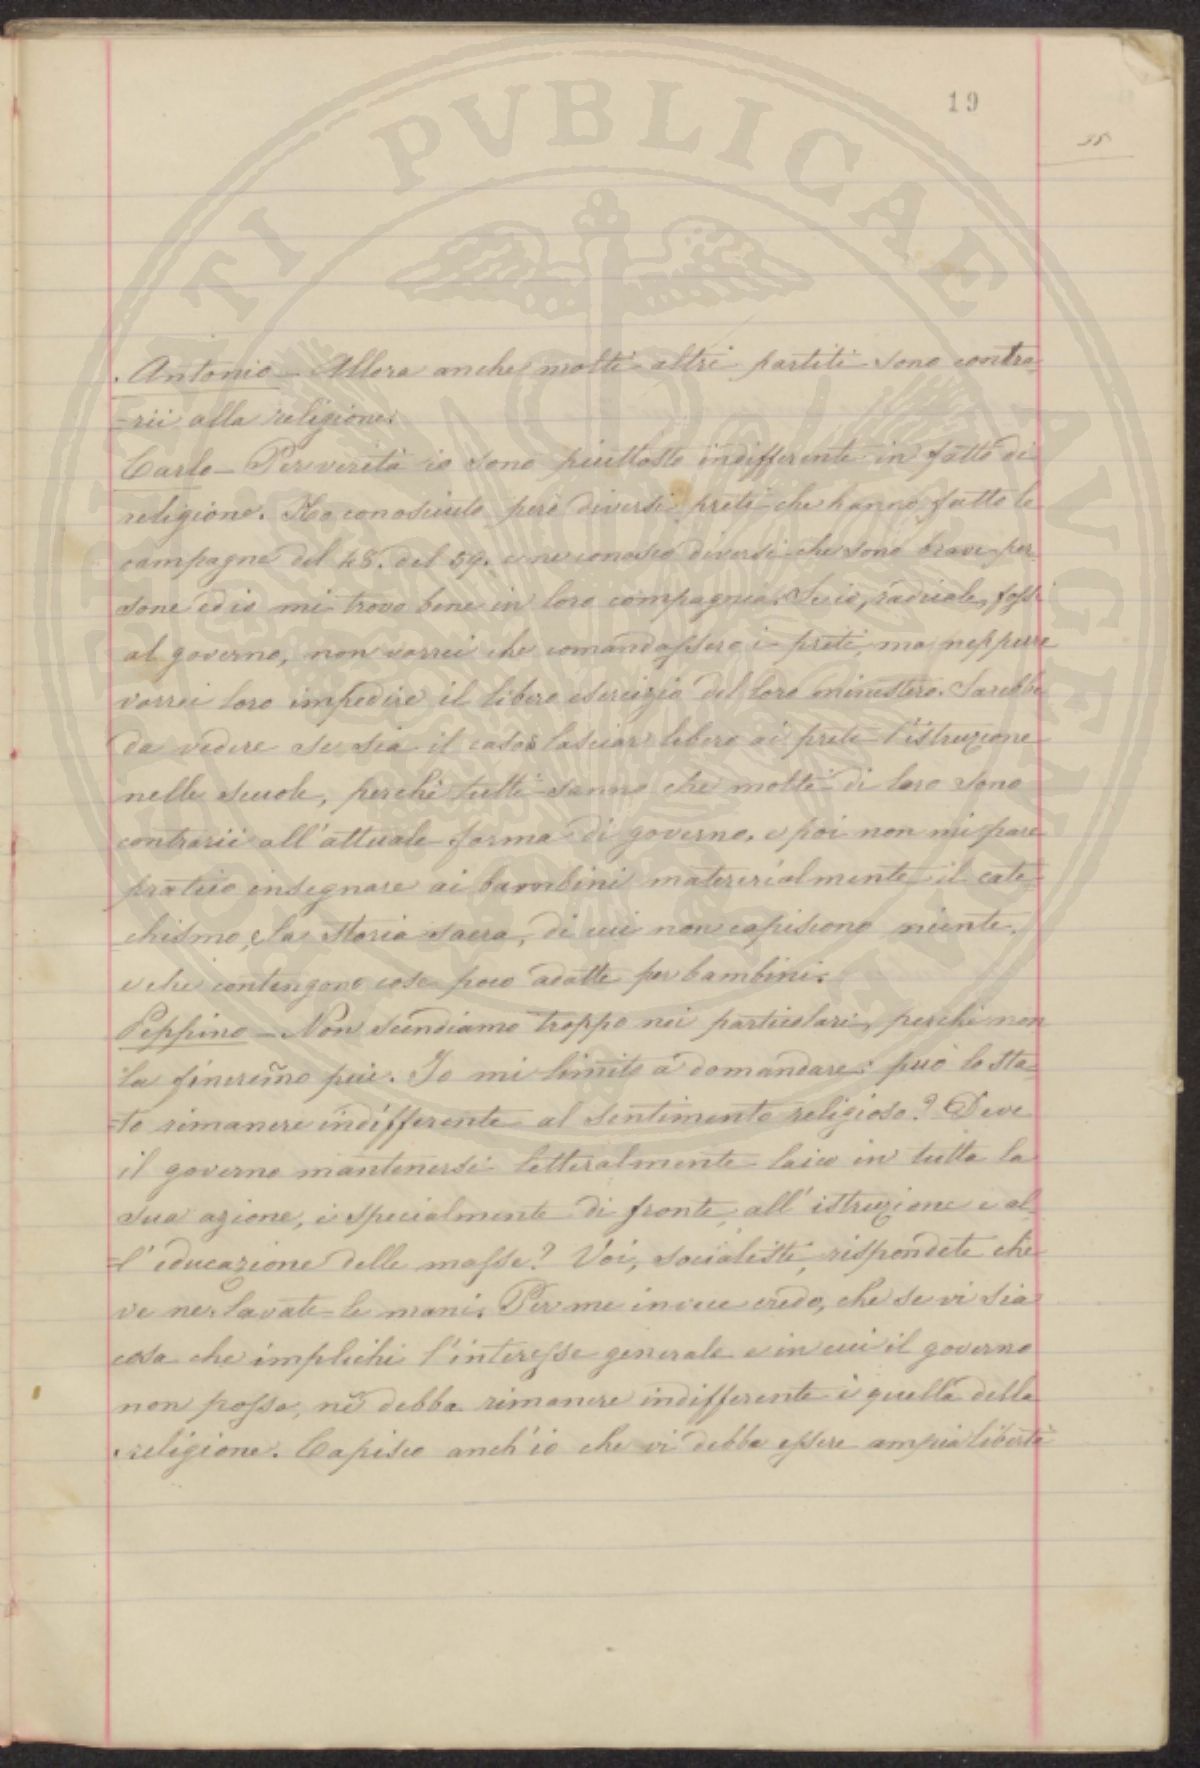 19
35
Antonio – Allora anche molti altri partiti sono contra-
-rii alla religione.
Carlo – Per verità io sono piuttosto indifferente in fatto di
religione. Ho conosciuto però diversi preti che hanno fatto le
campagne del 48. del 59. e ne conosco diversi che sono brave per-
sone ed io mi trovo bene in loro compagnia. Se io, radicale, fossi
al governo, non vorrei che comandassero i preti, ma neppure
vorrei loro impedire il libero esercizio del loro ministero. Sarebbe
da vedere se sia il caso lasciar libero ai preti l'istruzione
nelle scuole, perchè tutti sanno che molti di loro sono
contrarii all'attuale forma di governo. e poi non mi pare
pratico insegnare ai bambini materialmente il cate-
chismo, e la storia sacra, di cui non capiscono niente.
e che contengono cose poco adatte per bambini.
Peppino – Non scendiamo troppo nei particolari, perchè non
la finiremo più. Io mi limito a domandare: può lo sta-
-to rimanere indifferente al sentimento religioso? Deve
il governo mantenersi letteralmente laico in tutta la
sua azione, e specialmente di fronte all'istruzione e al-
-l'educazione delle masse? Voi, socialisti, rispondete che
ve ne lavate le mani. Per me invece credo, che se vi sia
cosa che implichi l'interesse generale e in cui il governo
non possa, nè debba rimanere indifferente è quella della
religione. Capisco anch'io che vi debba essere ampia libertà
PVBLICAE